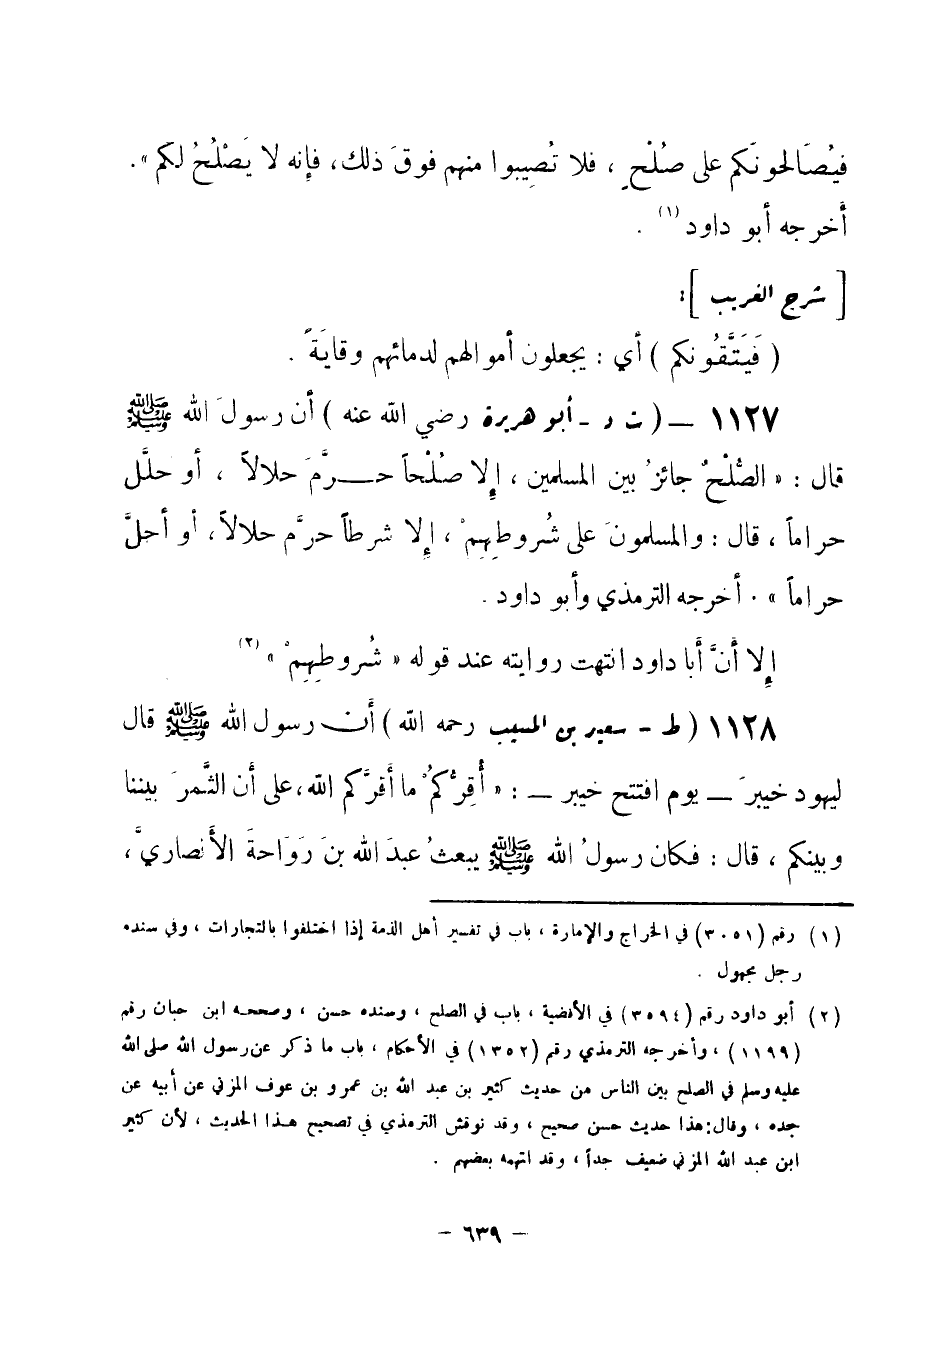 فيُصَالحونَكم على صُلْحٍ ، فلا تُصِيبوا منهم فوقَ ذلك، فإنه لا يَصْلُحُ لكم » .
أخرجه أبو داود (١) .
[ شرح الغريب ] :
( فَيَتَّقُونكم ) أي : يجعلون أموالهم لدمائهم وقايَةً .
١١٢٧ – ( ت د - أبو هريرة رضي الله عنه ) أن رسولَ الله ﷺ
قال : « الصُّلْحُ جائزٌ بين المسلمين ، إِلا صُلْحاً حـــرَّمَ حلالاً ، أو حلَّل
حراماً ، قال : والمسلمونَ على شُروطِهِمْ ، إِلا شرطاً حرَّم حلالاً، أو أحلَّ
حراماً » . أخرجه الترمذي وأبو داود .
إِلا أنَّ أبا داود انتهت روايته عند قوله « شُروطِهِمْ » (٢)
١١٢٨ ( ط - سعيد بن المسيب رحمه الله ) أَن رسول الله ﷺ قال
ليهود خيبرَ – يوم افتتح خيبر – : « أُقِرُّكُمْ ما أقرَّكم الله، على أن الثَّمرَ بيننا
وبينكم ، قال : فكان رسولُ الله ﷺ يبعثُ عبدَ الله بنَ رَوَاحةَ الأَنصاريَّ ،
(١) رقم (٣٠٥١) في الخراج والإمارة ، باب في تفسير أهل الذمة إذا اختلفوا بالتجارات ، وفي سنده
رجل مجهول .
(٢) أبو داود رقم (٣٥٩٤) في الأقضية ، باب في الصلح ، وسنده حسن ، وصححه ابن حبان رقم
(١١٩٩) ، وأخرجه الترمذي رقم (١٣٥٢) في الأحكام ، باب ما ذكر عن رسول الله صلى الله
عليه وسلم في الصلح بين الناس من حديث كثير بن عبد الله بن عمرو بن عوف المزني عن أبيه عن
جده ، وقال: هذا حديث حسن صحيح ، وقد نوقش الترمذي في تصحيح هـذا الحديث ، لأن كثير
ابن عبد الله المزني ضعيف جداً ، وقد اتهمه بعضهم .
– ٦٣٩ –